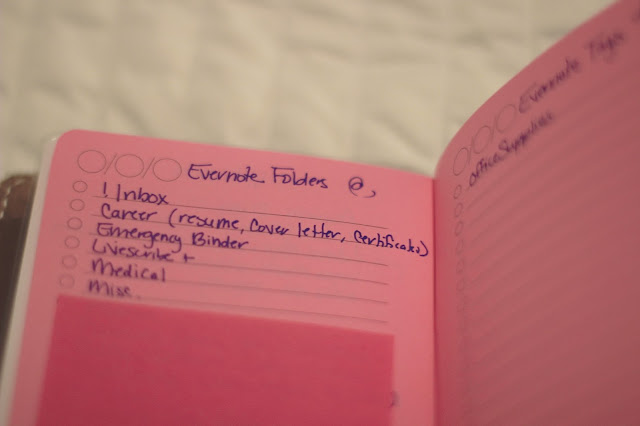 Evernote Folders @
! Inbox
Career (resume, cover letter, certificates)
Emergency Binder
Livescribe +
Medical
Misc.
Evernote Tags
office supplies